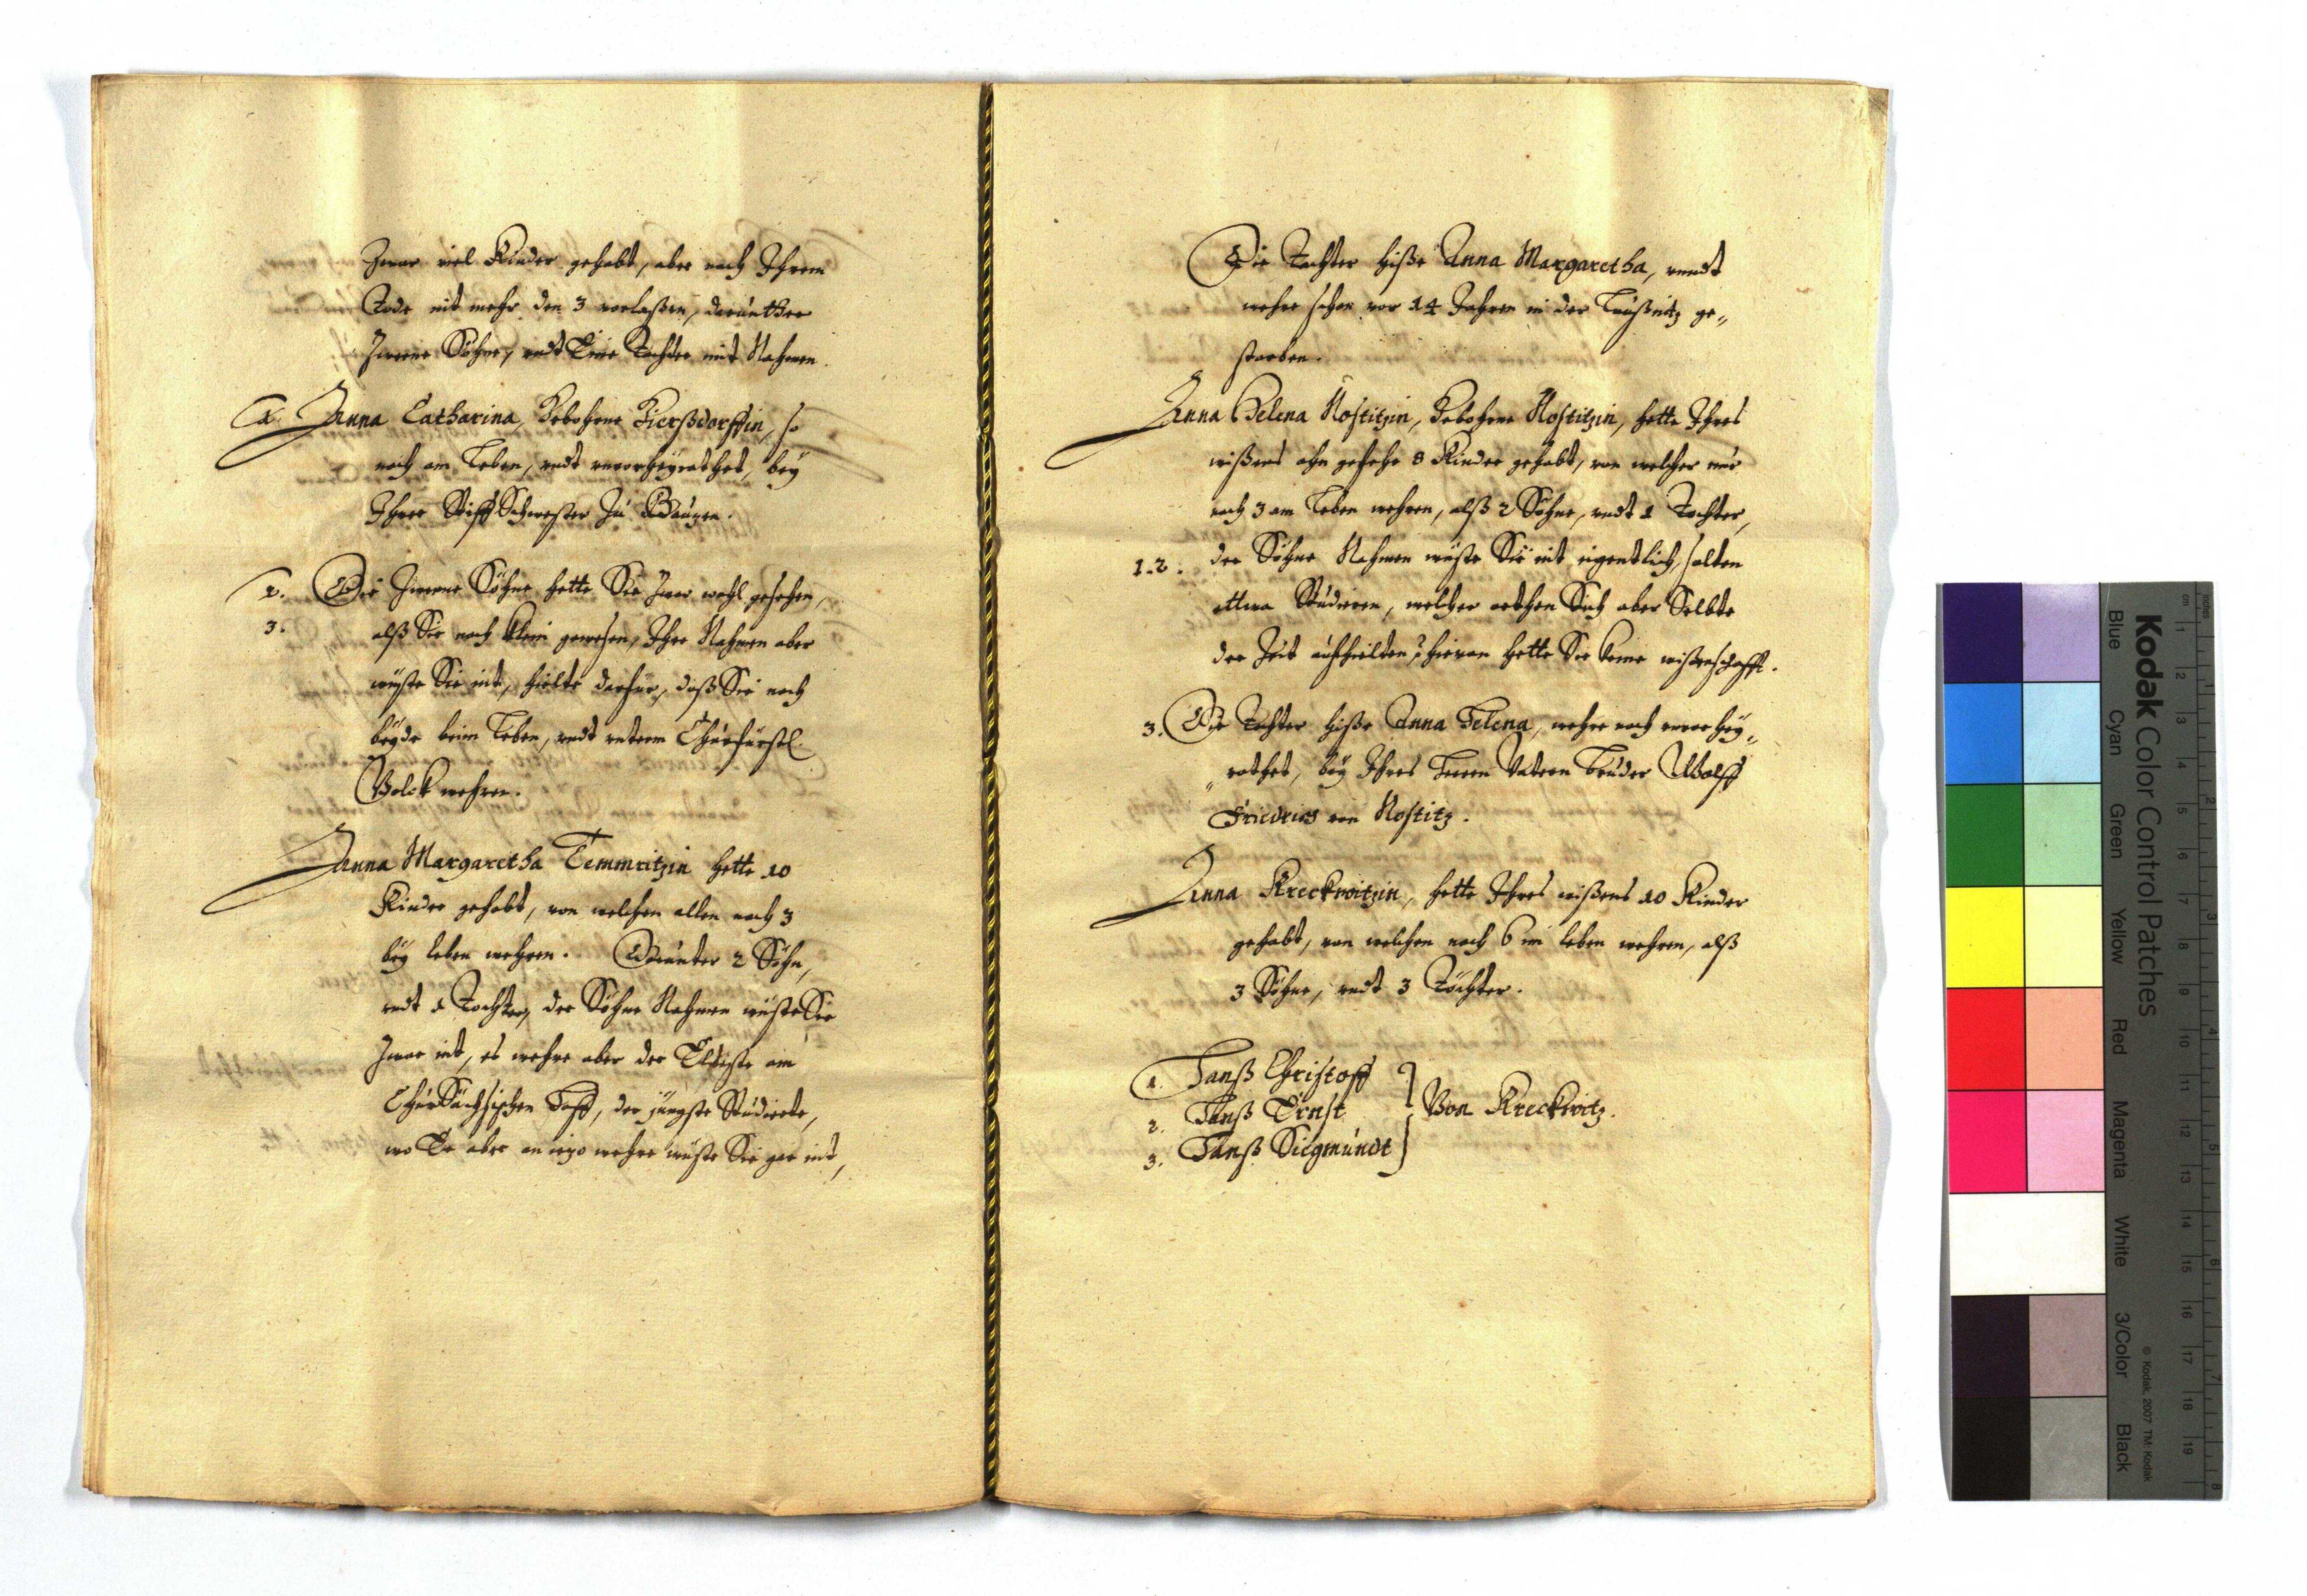 Zwar viel Kinder gehabt, aber nach Ihrem
Tode nit mehr den 3 verlaßen, daruntter
Zweene Söhne, undt Eine Tochter mit Nahmen
1. Anna Catharina, Gebohrne Gierßdorffin, so
noch am Leben, undt unvorheyrathet, bey
Ihrer Stiff Schwester zu Bauzen.
2. Die Zweene Söhne hette Sie zwar wohl gesehen,
3. alß Sie noch klein gewesen, Ihre Nahmen aber
wüste Sie nit, hielte darfür, daß Sie noch
beyde beim Leben, undt unterm Churfürstl.
Volck wehren.
Anna Margaretha Temmritzin hette 10
Kinder gehabt, von welchen allen noch 3
bey leben wehren. Darunter 2 Söhn,
undt 1 Tochter, der Söhne Nahmen wüste Sie
Zwar nit, es wehre aber der Elteste am
ChurSächsischen Hoff, der jüngste Studierete,
wo Er aber an iezo wehre wüste Sie gar nit,
Die Tochter hiße Anna Margaretha, undt
wehre schon vor 14 Jahren in der Laußnitz ge„
storben.
Anna Helena Nostitzin, Gebohrne Nostitzin, hette Ihres
wißens ohn gefehr 8 Kinder gehabt, von welcher nur
noch 3 am Leben wehren, alß 2 Söhne, undt 1 Tochter,
1. 2. der Söhne Nahmen wüste Sie nit eigentlich, solten
ettwa Studieren, welcher orthen Sich aber Selbte
der Zeit aufhielten, hiervon hette Sie keine wißenschafft.
3. Die Tochter hiße Anna Helena, wehre noch unverhey„
„rathet, bey Ihres Herrn Vatern Bruder Wolff
Friedrich von Nostitz.
Anna Kreckwitzin, hette Ihres wißens 10 Kinder
gehabt, von welchen noch 6 im leben wehren, alß
3 Söhne, undt 3 Töchter.
1. Hanß Christoff
2. Hanß Ernst } Von Kreckwitz.
3. Hanß Siegmundt
Kodak Color Control Patches
Blue Cyan Green Yellow Red Magenta White 3/Color Black
© Kodak, 2007 TM: Kodak
inches 1 2 3 4 5 6 7 8
cm 1 2 3 4 5 6 7 8 9 10 11 12 13 14 15 16 17 18 19